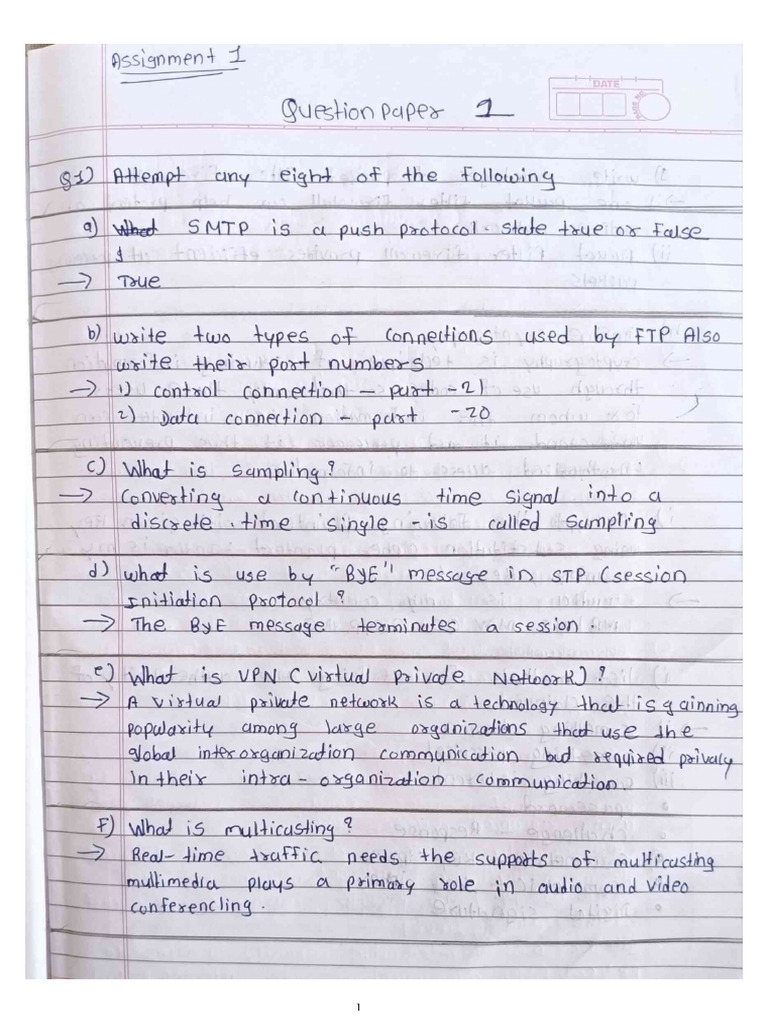 Assignment 1
Question paper 1
DATE
Q1) Attempt any eight of the following
a) What SMTP is a push protocol. state true or false
1
→ True
b) write two types of connections used by FTP Also
write their port numbers
→ 1) control connection - part -21
2) Data connection - part -20
c) What is sampling?
→ Converting a continuous time signal into a
discrete. time single - is called sampling
d) what is use by "BYE" message in STP (session
Initiation protocol?
→ The BYE message terminates a session.
e) What is VPN (virtual private Network)?
→ A virtual private network is a technology that is gainning
popularity among large organizations that use the
global interorganization communication but required privacy
In their intra-organization communication
F) What is multicusting?
→ Real-time traffic needs the supports of multicasting
multimedia plays a primary role in audio and video
conferencling.
1